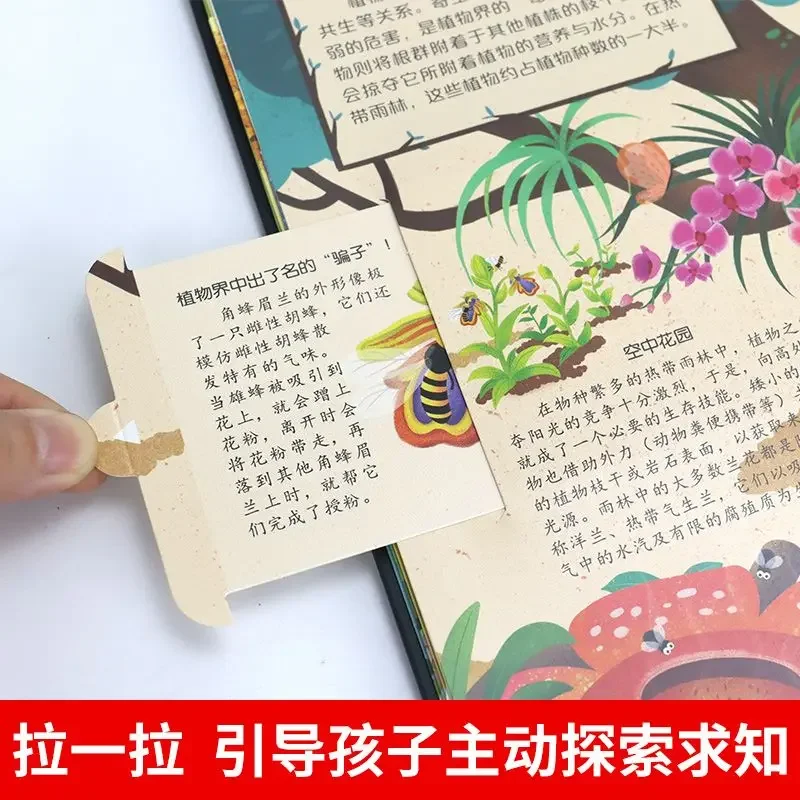 共生等关系。寄生
弱的危害，是植物界的
物则将根群附着于其他植株的枝干
会掠夺它所附着植物的营养与水分。在热
带雨林，这些植物约占植物种数的一大半。
植物界中出了名的“骗子”！
角蜂眉兰的外形像极
了一只雌性胡蜂，它们还
模仿雌性胡蜂散
发特有的气味。
当雄蜂被吸引到
花上，就会蹭上
花粉，离开时会
将花粉带走，再
落到其他角蜂眉
兰上时，就帮它
们完成了授粉。
空中花园
在物种繁多的热带雨林中，植物之
夺阳光的竞争十分激烈，于是，向高处
就成了一个必要的生存技能。矮小的
物也借助外力（动物粪便携带等）
的植物枝干或岩石表面，以获取来
光源。雨林中的大多数兰花都是
称洋兰、热带气生兰，它们以吸
气中的水汽及有限的腐殖质为
拉一拉 引导孩子主动探索求知